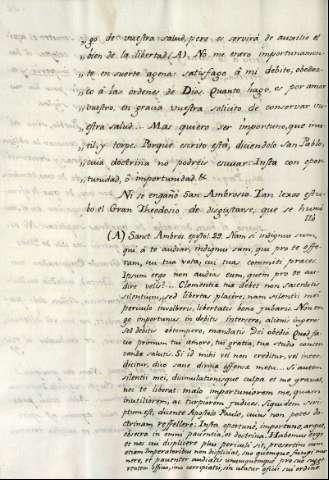 „go de vuestra salud, pero se servirá de auxilio el
„bien de la libertad (A). No me exero importunamen-
„te en suerte agena: satisfago á mi debito, obedez-
„co á las ordenes de Dios. Quanto hago, es por amor
„vuestro, en gracia vuestra solicito de conservar vu-
„estra salud... Mas quiero ser importuno, que inu-
„til, y torpe. Porque escrito está, diciendolo San Pablo,
„cuia doctrina no podreis escusar: Insta con opor-
„tunidad, ó importunidad. &
Ni se engañó San Ambrosio. Tan lexos estu-
bo el Gran Theodosio de disgustarse, que se humi
llo
(A) Sanct. Ambros. epist. 29. Nam si indignus sum,
qui á te audiar, indignus sum, qui pro te offe-
ram, cui tua vota, cui tua committi preces.
Ipsum ergo non audies eum, quem pro te au-
dire velis?... Clementiæ tuæ debet non sacerdotis
silentium, sed libertas placere, nam silentii mei
periculo involveris, libertatis bono jubaris. Non er-
go importunus in debitis intercero, alienis ingero
sed debitis obtempero, mandatis Dei obedio. Quod fa-
cio primum tui amore, tui gratia, tuæ studio conser-
vandæ salutis. Si id mihi vel non creditur, vel inter-
dicitur, dico sane divinæ offensæ metu. Si autem
silentii mei, dissimulationisque culpa et me gravat,
nec te liberat: malo importuniorem me, quam
inutiliorem, ac turpiorem judices. Siquidem scri-
ptum est, dicente Apostolo Paulo, cuius non potes doc-
trinam reffellere: Insta oportune, importune, argue,
obsecra in omni patientia, et doctrina. Habemus ergo
et nos cui displicere plus periculi sit, præsertim cum
etiam Imperatoribus non displiceat, suo quemque fungi mu-
nere, et patienter audiatis unumquemque pro suo sugge-
rentem officio, imo corripiatis, si non utatur officii sui ordine.